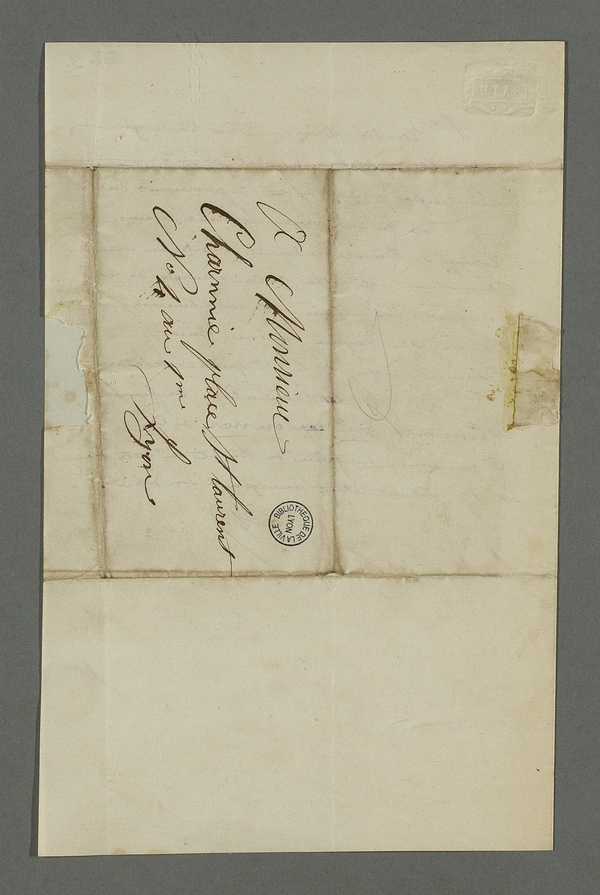 A Monsieur
Charmie place St Laurent
No 4 au 1me
Lyon
BIBLIOTHEQUE DE LA VILLE
LYON